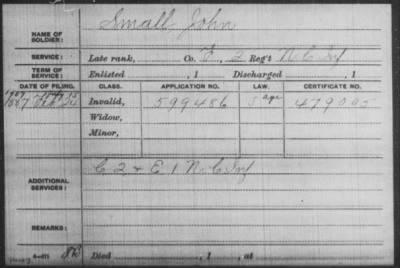 Small John
NAME OF SOLDIER:
SERVICE: Late rank, Co. F, 2 Reg't N.C. Inf
TERM OF SERVICE: Enlisted , 1 Discharged , 1
DATE OF FILING. CLASS. APPLICATION NO. LAW. CERTIFICATE NO.
1887 Invalid, 599486 age 479005
Widow,
Minor,
ADDITIONAL SERVICES: C 2 & E 1 N.C. Inf
REMARKS:
Died , 1 , at